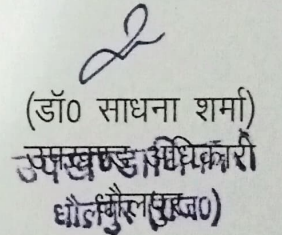 (डॉ0 साधना शर्मा)
उपखण्ड अधिकारी
धौलपुर (राज0)